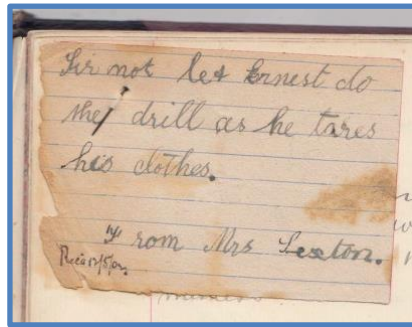 Sir not let Ernest do
the drill as he tares
his clothes.
From Mrs Sexton.